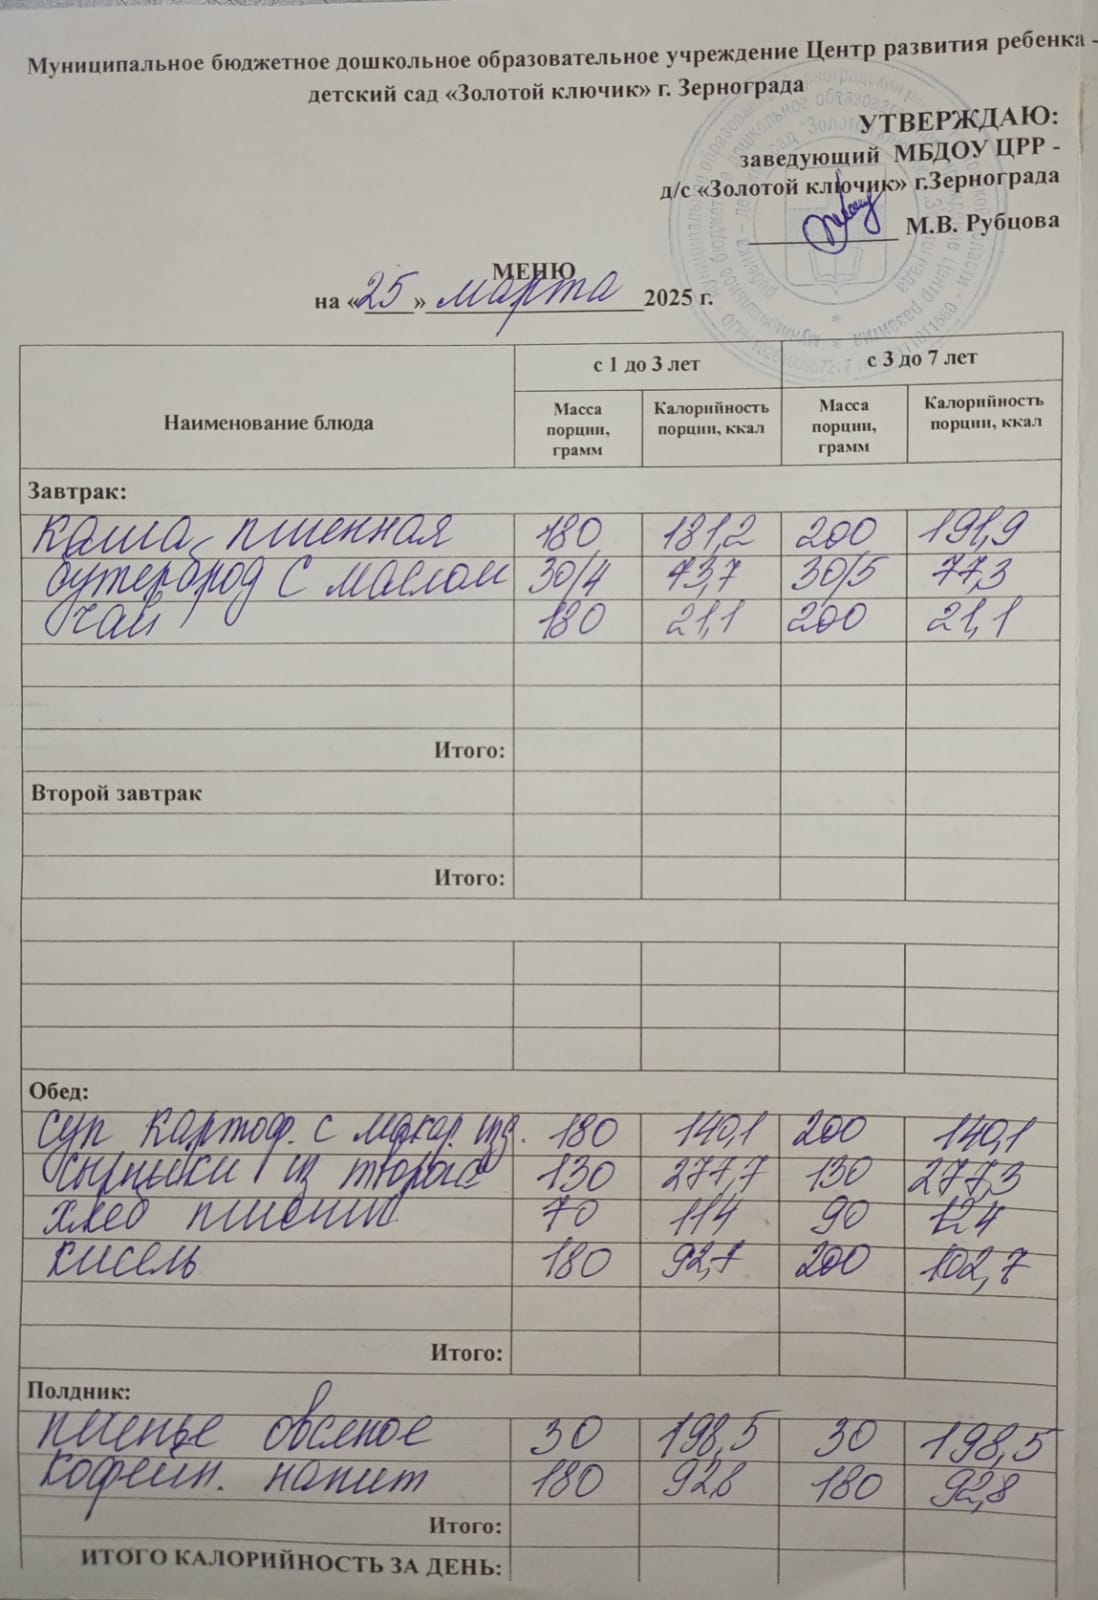 Муниципальное бюджетное дошкольное образовательное учреждение Центр развития ребенка -
детский сад «Золотой ключик» г. Зернограда
УТВЕРЖДАЮ:
заведующий МБДОУ ЦРР -
д/с «Золотой ключик» г.Зернограда
М.В. Рубцова
МЕНЮ
на «25» марта 2025 г.
Наименование блюда с 1 до 3 лет с 3 до 7 лет
Масса порции, грамм Калорийность порции, ккал Масса порции, грамм Калорийность порции, ккал
Завтрак:
каша пшенная 180 181,2 200 191,9
бутерброд с маслом 30/4 73,7 30/5 77,3
чай 180 21,1 200 21,1
Итого:
Второй завтрак
Итого:
Обед:
суп картоф. с макар. изд. 180 140,1 200 140,1
сырники из творога 130 277,7 130 277,3
хлеб пшенич. 70 114 90 124
кисель 180 92,7 200 102,7
Итого:
Полдник:
печенье овсяное 30 198,5 30 198,5
кофейн. напит 180 92,8 180 92,8
Итого:
ИТОГО КАЛОРИЙНОСТЬ ЗА ДЕНЬ: